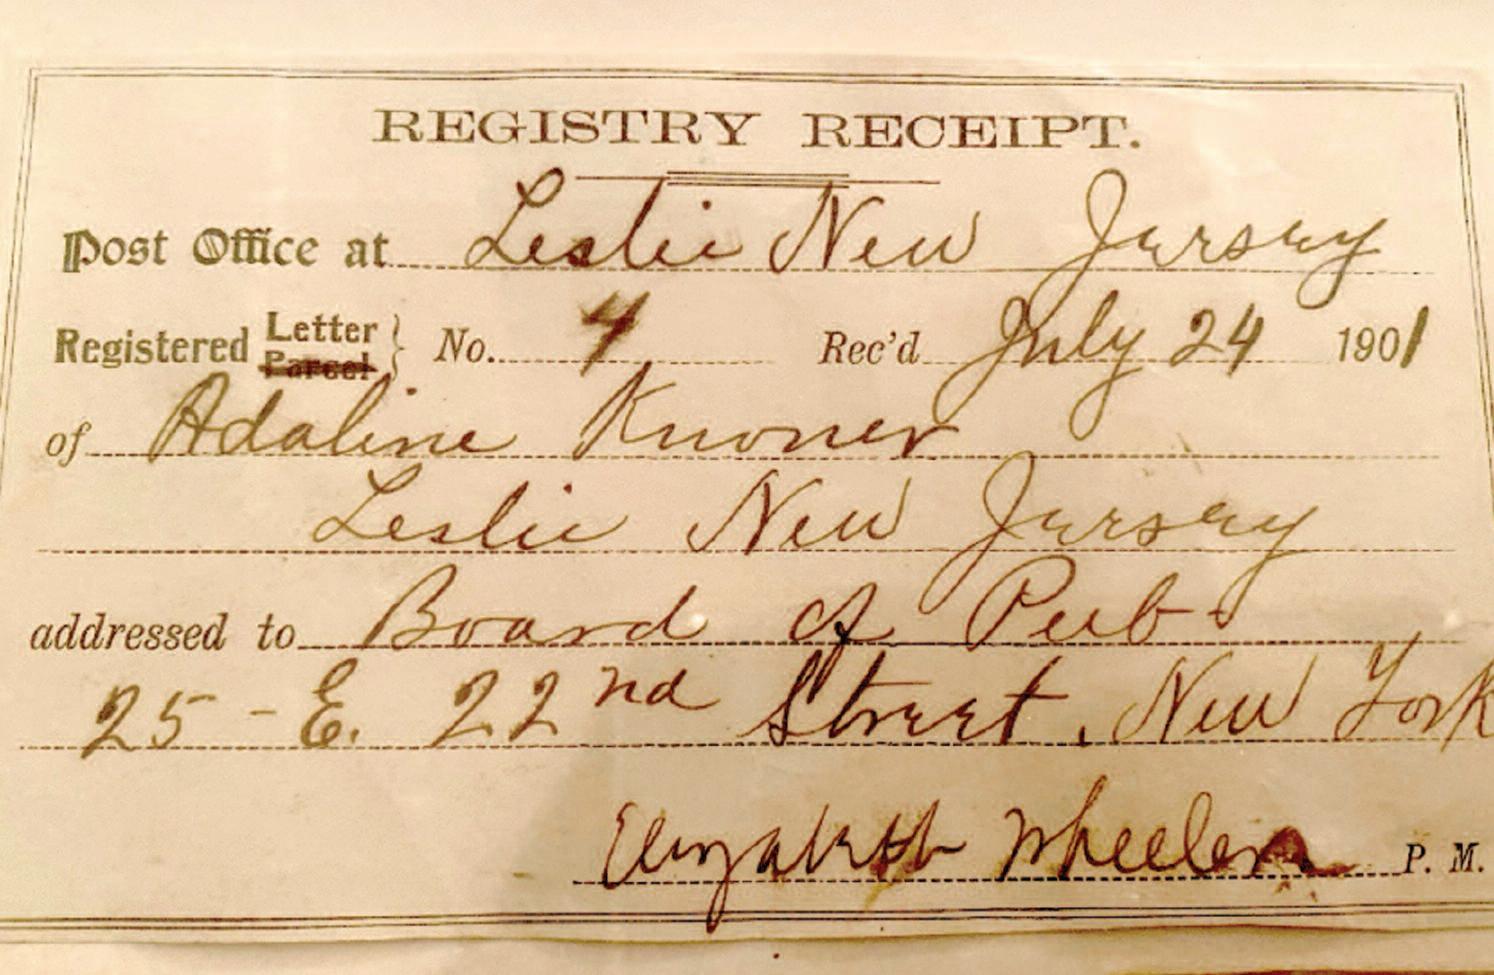 REGISTRY RECEIPT.
Post Office at Leslie New Jersey
Registered Letter Parcel } No. 4 Rec'd July 24 1901
of Adaline Knoner
Leslie New Jersey
addressed to Board of Pub.
25 - E. 22nd Street, New York
Elizabeth Wheeler P. M.